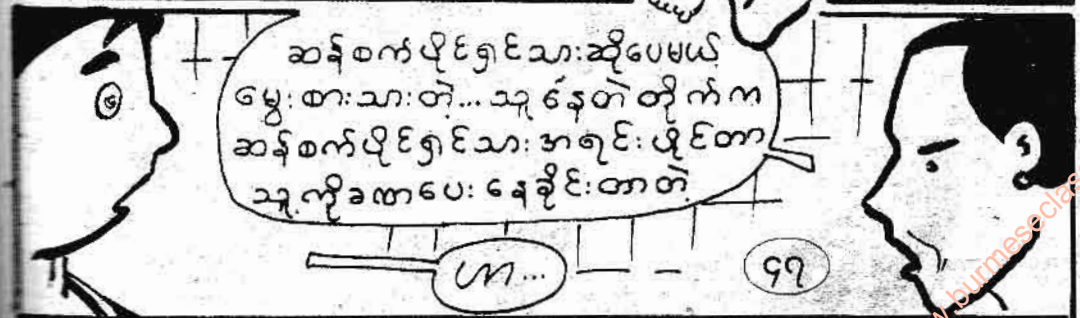 ဆန်စက်ပိုင်ရှင်သားဆိုပေမယ့်
မွေးစားသားတဲ့... သူနေတဲ့တိုက်က
ဆန်စက်ပိုင်ရှင်သားအရင်းပိုင်တာ
သူ့ကိုခဏပေးနေခိုင်းတာတဲ့
ဟာ...
၄၇
burmeseclas